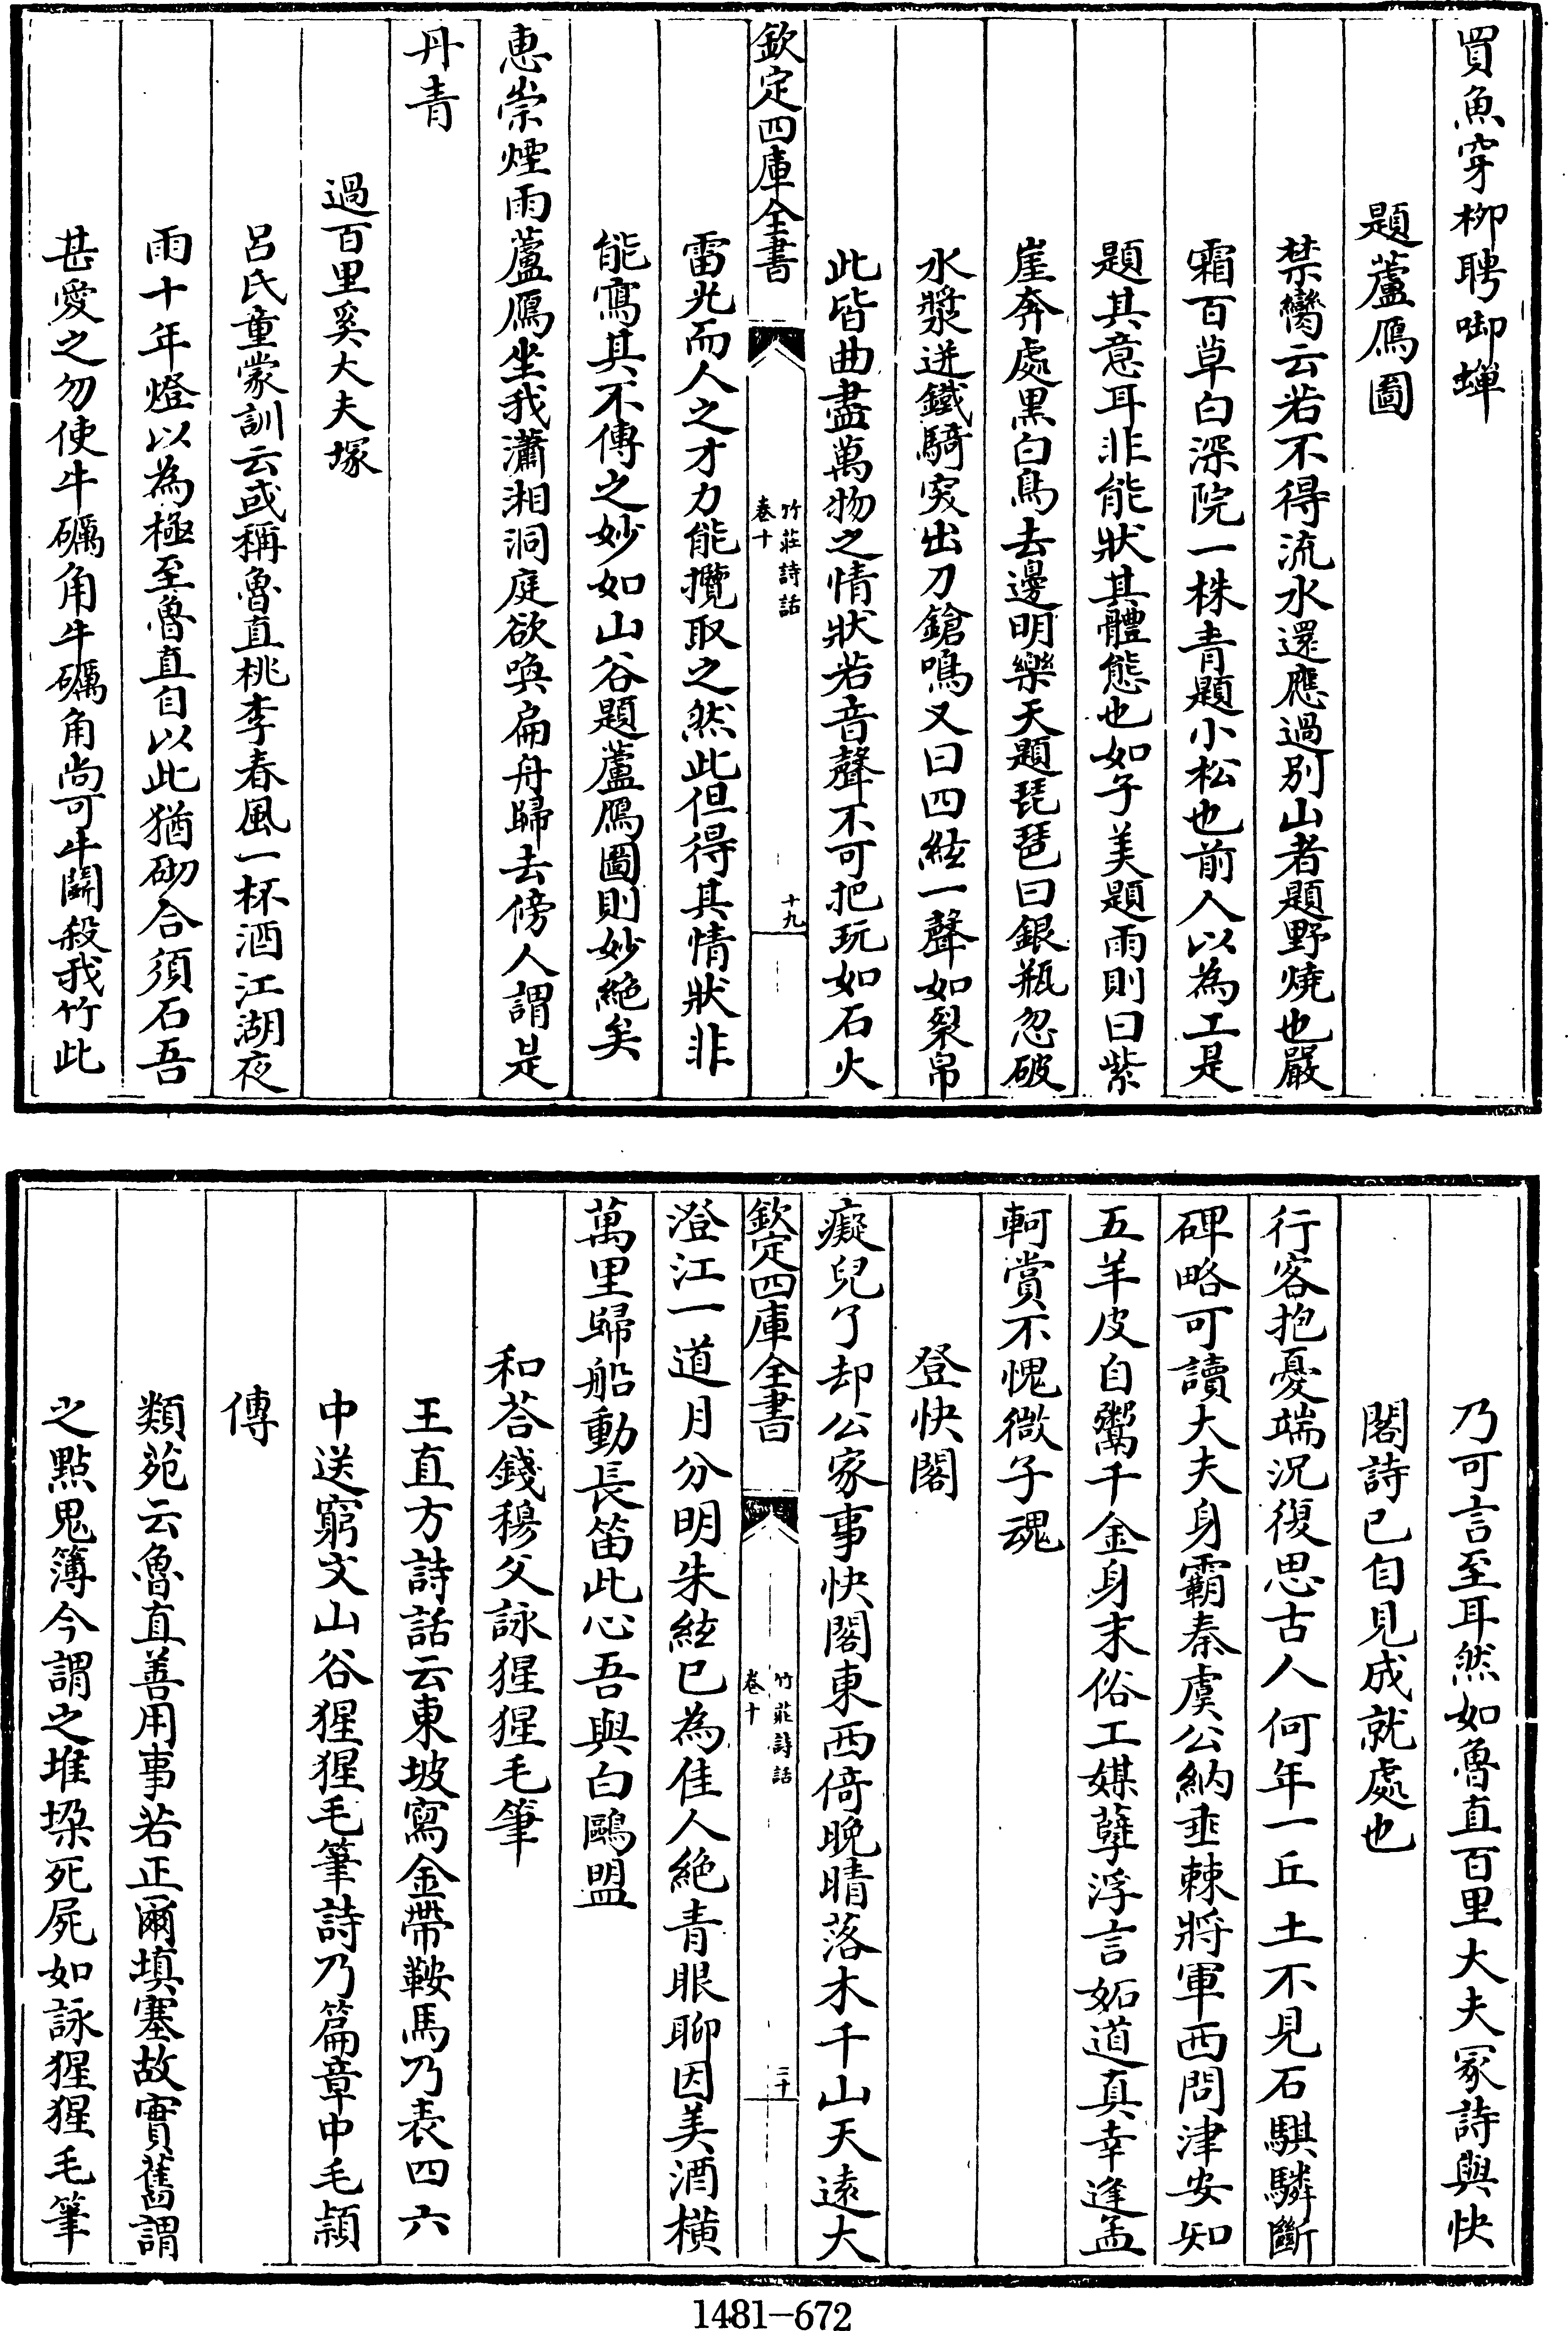 買魚穿柳聘㗸蟬
題蘆鴈圖
禁臠云若不得流水還應過別山者題野燒也嚴
霜百草白深院一株青題小松也前人以為工是
題其意耳非能狀其體態也如子美題雨則曰紫
崖奔處黑白鳥去邊明樂天題琵琶曰銀瓶忽破
水漿迸鐵騎突出刀鎗鳴又曰四絃一聲如裂帛
此皆曲盡萬物之情狀若音聲不可把玩如石火
欽定四庫全書
竹莊詩話
卷十
十九
雷光而人之才力能攬取之然此但得其情狀非
能寫其不傳之妙如山谷題蘆鴈圖則妙絶矣
惠崇煙雨蘆鴈坐我瀟湘洞庭欲喚扁舟歸去傍人謂是
丹青
過百里奚大夫塚
呂氏童蒙訓云或稱魯直桃李春風一杯酒江湖夜
雨十年燈以為極至魯直自以此猶砌合須石吾
甚愛之勿使牛礪角牛礪角尚可牛鬬殺我竹此
乃可言至耳然如魯直百里大夫冢詩與快
閣詩已自見成就處也
行客抱憂端况復思古人何年一丘土不見石騏驎斷
碑略可讀大夫身霸秦虞公納垂棘將軍西問津安知
五羊皮自鬻千金身末俗工媒孽浮言妬道真幸逢孟
軻賞不愧微子魂
登快閣
癡兒了却公家事快閣東西倚晩晴落木千山天遠大
欽定四庫全書
竹莊詩話
卷十
二十
澄江一道月分明朱絃已為佳人絶青眼聊因美酒橫
萬里歸船動長笛此心吾與白鷗盟
和荅錢穆父詠猩猩毛筆
王直方詩話云東坡寫金帶鞍馬乃表四六
中送窮文山谷猩猩毛筆詩乃篇章中毛頴
傳
類苑云魯直善用事若正爾填塞故實舊謂
之點鬼簿今謂之堆垜死屍如詠猩猩毛筆
1481-672